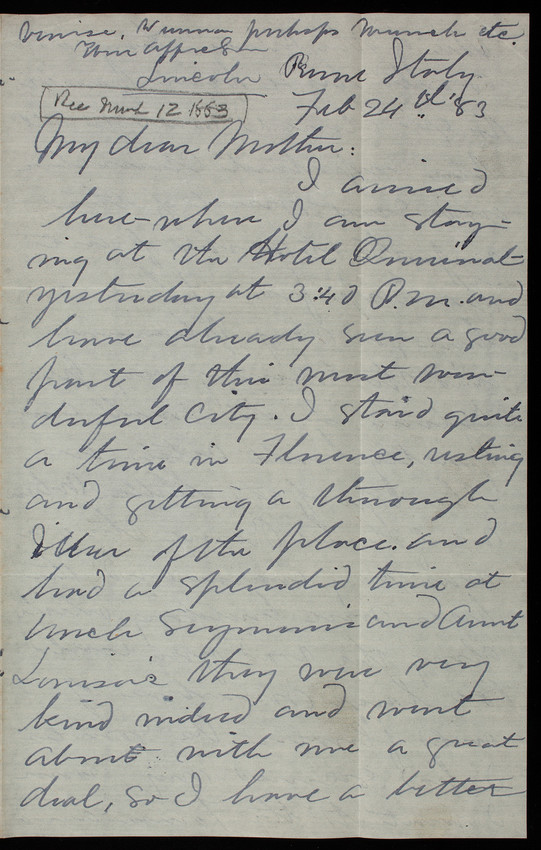 Venise, Vienna perhaps Munich etc.
Your affec son
Lincoln
Rome Italy
Rec Mch 12 1883
Feb 24th '83
My dear Mother:
I arrived
here - where I am stay-
ing at the Hotel Quirinal -
yesterday at 3:40 P.M. and
have already seen a good
part of this most won-
derful City. I staid quite
a time in Florence, resting
and getting a thorough
idea of the place. and
had a splendid time at
Uncle Seymour's and Aunt
Louisa's they were very
kind indeed and went
about with me a great
deal, so I have a better